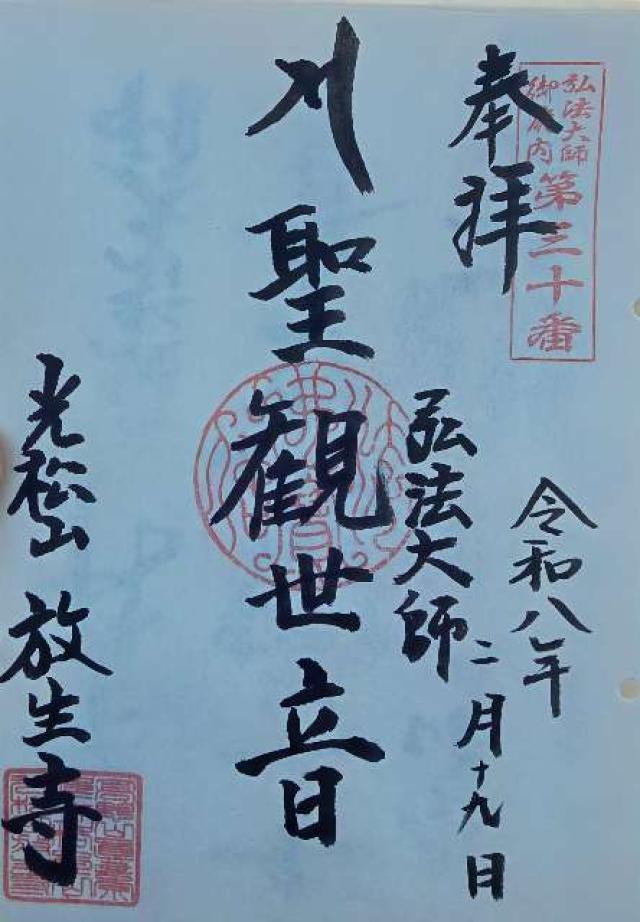 弘法大師
御府内
第三十番
奉拝
令和八年
二月十九日
弘法大師
聖観世音
光松山 放生寺